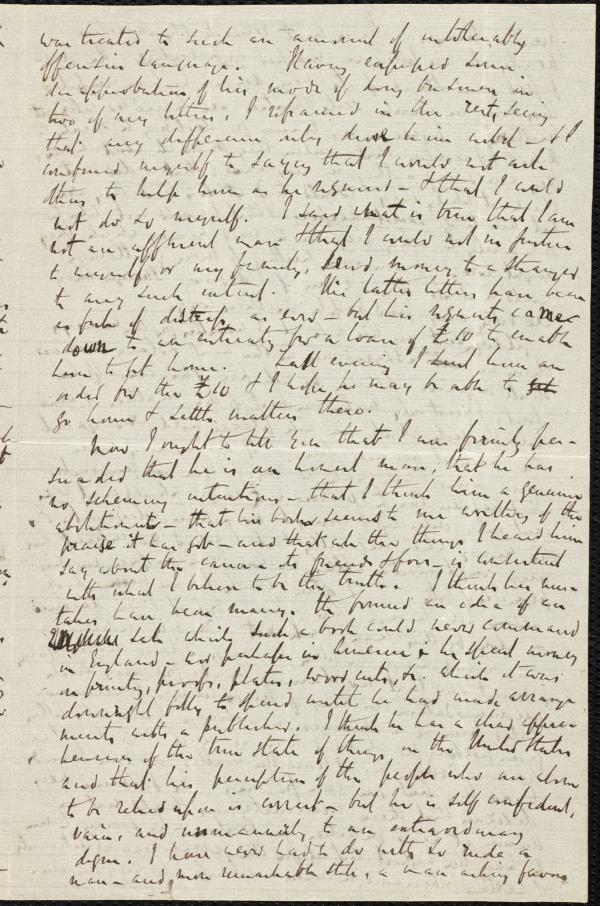 was treated to such an amount of intolerably
offensive language. Having expressed some
disapprobation of his mode of doing business in
two of my letters, I refrained in the rest, seeing
that any difference only drove him wild - & I
confined myself to saying that I would not ask
others to help him as he required - & that I could
not do so myself. I said what is true that I am
not an affluent man & that I could not in justice
to myself or my family, lend money to a stranger
to any such extent. His latter letters have been
as full of distress as ever - but his requests came
down to an entreaty for a loan of £10 to enable
him to get home. Last evening I sent him an
order for the £10 & I hope he may be able to
go home & settle matters there.
Now I ought to tell you that I am firmly per-
suaded that he is an honest man, that he has
no scheming intentions - that I think him a genuine
abolitionist - that his book seems to me worthy of the
praise it has got - and that all the things I heard him
say about the cause - its friends & foes - is consistent
with what I believe to be the truth. I think his mis-
takes have been many. He formed an idea of an
sale which such a book could never command
in England - nor perhaps in America & he spent money
in printing, proofs, plates, wood cuts, &c. which it was
downright folly to spend until he had made arrange
ments with a publisher. I think he has a clear appre-
hension of the true state of things in the United States
and that his perception of the people who are alone
to be relied upon is correct - but he is self confident,
vain, and unmannerly to an extraordinary
degree. I have never had to do with so rude a
man - and more remarkable still, a man asking favors